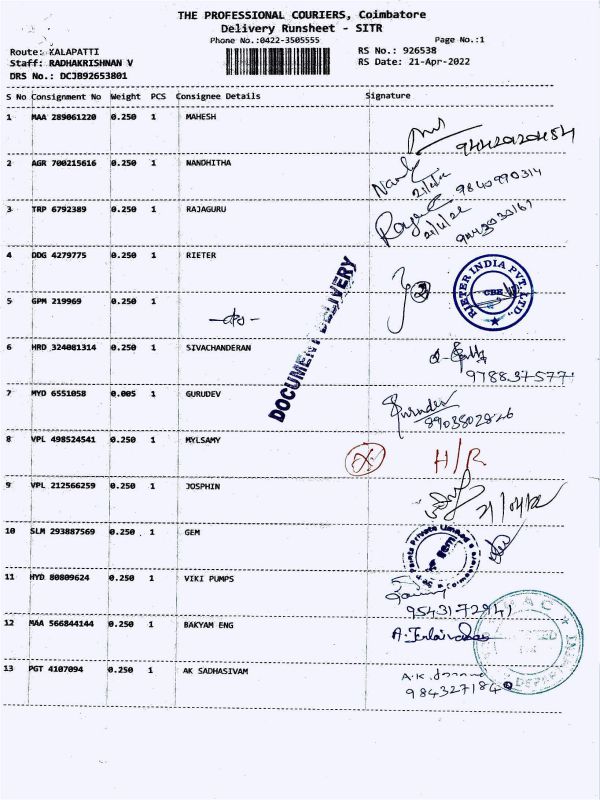 THE PROFESSIONAL COURIERS, Coimbatore
Delivery Runsheet - SITR
Phone No.:0422-3505555 Page No.:1
Route: KALAPATTI RS No.: 926538
Staff: RADHAKRISHNAN V RS Date: 21-Apr-2022
DRS No.: DCJB92653801
S No Consignment No Weight PCS Consignee Details Signature
1 MAA 289061220 0.250 1 MAHESH
2 AGR 700215616 0.250 1 NANDHITHA
9840990314
3 TRP 6792389 0.250 1 RAJAGURU
4 DDG 4279775 0.250 1 RIETER
RIETER INDIA PVT. LTD.,
CBE
5 GPM 219969 0.250 1
DOCUMENT DELIVERY
6 HRD 324081314 0.250 1 SIVACHANDERAN
9788375771
7 MYD 6551058 0.005 1 GURUDEV
8903802826
8 VPL 498524541 0.250 1 MYLSAMY
X H/R
9 VPL 212566259 0.250 1 JOSPHIN
10 SLM 293887569 0.250 1 GEM
11 HYD 80809624 0.250 1 VIKI PUMPS
9543172941
12 MAA 566844144 0.250 1 BAKYAM ENG
13 PGT 4107094 0.250 1 AK SADHASIVAM
A.K.
9843271840